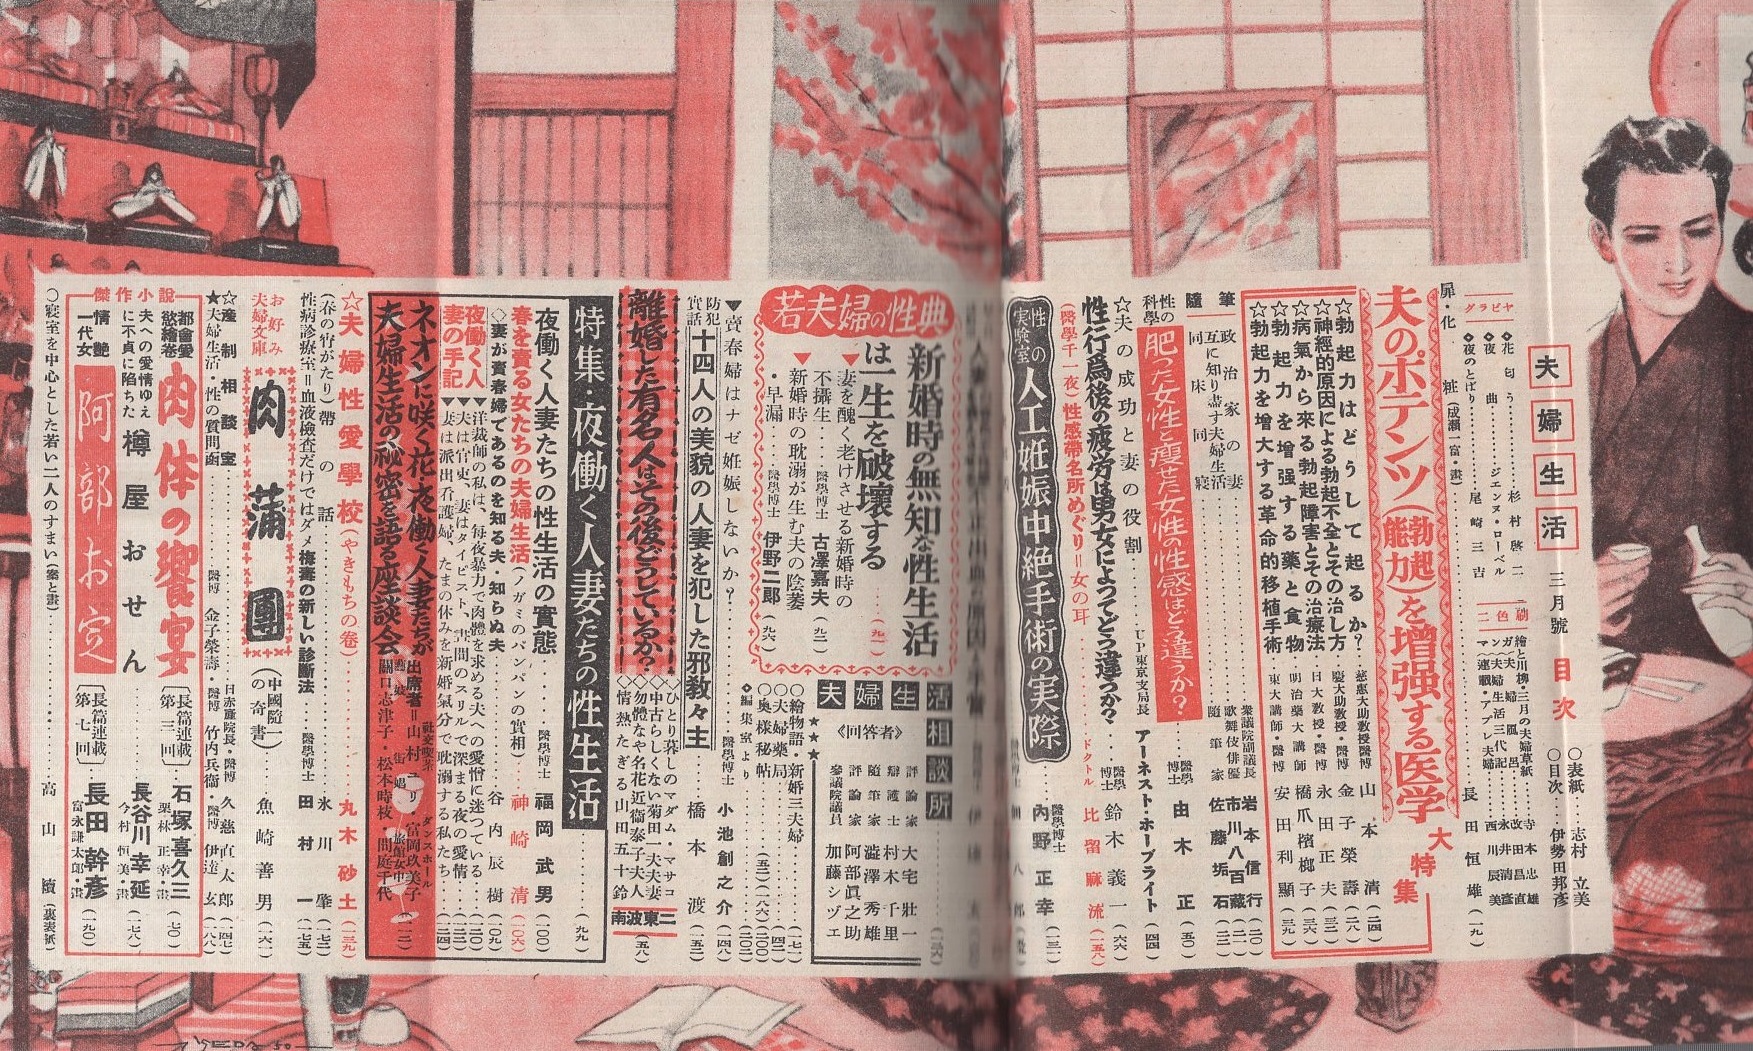 夫婦生活 三月號 目次
○表紙…志村立美
○目次…伊勢田邦彦
グラビヤ
◇花匂う……杉村啓二
◇夜曲……ジエンヌ・ローベル
◇夜のとばり……尾崎三吉
二色刷
繪と川柳・三月の夫婦草紙…寺本忠雄
扉・化粧(成瀬一富・畫)……長田恒雄(一九)
夫のポテンツ(勃起能力)を増强する医学大特集
☆勃起力はどうして起るか?…慈惠大助教授醫博 山本清(二四)
☆神經的原因による勃起不全とその治し方…慶大助教授・醫博 金子榮壽(二八)
☆病氣から來る勃起障害とその治療法…日大教授・醫博 永田正夫(三三)
☆勃起力を增强する藥と食物…明治藥大講師 橋爪檳榔子(三六)
☆勃起力を増大する革命的移植手術…東大講師・醫博 安田利顯(三九)
隨筆
政治家の妻…衆議院副議長 岩本信行(二〇)
互に知り盡す夫婦生活…歌舞伎俳優 市川八百藏(二一)
同床同寢…隨筆家 佐藤垢石(二三)
性の科學 肥つた女性と瘦せた女性の性感はどう違うか?…醫學博士 由木正(五〇)
UP東京支局長 アーネスト・ホーブライト(四四)
☆夫の成功と妻の役割
性行爲後の疲労は男女によつてどう違うか?…醫學博士 鈴木義一(六六)
(醫學千一夜)性感帯名所めぐり=女の耳…ドクトル 比留麻流(一五八)
性の実験室 人工妊娠中絶手術の実際…醫學博士 内野正幸(一三一)
若夫婦の性典
新婚時の無知な性生活は一生を破壊する……(九一)
▼妻を醜く老けさせる新婚時の不攝生……醫學博士 古澤嘉夫(九二)
▼新婚時の耽溺が生む夫の陰萎・早漏……醫學博士 伊野二郎(九六)
夫婦生活相談所
《回答者》
評論家 大宅壯一
辯護士 村木千里
隨筆家 澁澤秀雄
評論家 阿部眞之助
參議院議員 加藤シヅエ
○繪物語・新婚三夫婦……(一七一)
○夫婦藥局……(四二)
○奥樣秘帖……(五二)(八六)(一〇〇)
◆編集室より……(二〇二)
▼賣春婦はナゼ妊娠しないか?……醫學博士 小池創之介(一四八)
防犯實話 十四人の美貌の人妻を犯した邪教々主……橋本渡(一五二)
離婚した有名人はその後どうしているか?
◇ひとり暮しのマダム・マサコ
◇中古らしくない菊田一夫夫妻
◇勿體なや名花近衞泰子夫人
◇情熱たぎる山田五十鈴
南波東二(五八)
特集・夜働く人妻たちの性生活……(九九)
夜働く人妻たちの性生活の實態……醫學博士 福岡武男(一〇〇)
春を賣る女たちの夫婦生活(ノガミのパンパンの實相)……神崎清(一〇六)
◇妻が賣春婦であるのを知る夫・知らぬ夫……谷内辰樹(一〇九)
夜働く人妻の手記
▼洋裁師の私は、毎夜暴力で肉體を求める夫への愛憎に迷つている…(一三〇)
▼夫は官吏、妻はタイピスト、晝間のスリルで深まる夜の愛情……
▼妻は派出看護婦、たまの休みを新婚氣分で耽溺する私たち……
ネオンに咲く花・夜働く人妻たちが夫婦生活の秘密を語る座談会
出席者=社交喫茶 山村ユリ・ダンスホール 富岡玖美子
關口志津子・旅館女中 松本時枝・間庭千代(一一二)
☆夫婦性愛學校(やきもちの卷)……丸木砂土(一三九)
(春の竹がたり)帶の話……氷川肇(一七二)
性病診療室=血液檢査だけではダメ 梅毒の新しい診断法……醫學博士 田村一(一七五)
お好み夫婦文庫 肉蒲團(中國随一の奇書)……魚崎善男(一六二)
☆産制相談室……日赤産院長・醫博 久慈直太郎(一四七)
★夫婦生活・性の質問函……醫博 金子榮壽・醫博 竹内兵衞・醫博 伊達玄(一八八)
傑作小説
都會愛慾繪巻 肉体の饗宴〔長篇連載 第三回〕石塚喜久三 栗林正幸・畫(一七〇)
夫への愛情ゆえに不貞に陥ちた 樽屋おせん……長谷川幸延 今村恒美・畫(一七八)
情艶一代女 阿部お定〔長篇連載 第七回〕長田幹彦 富永謙太郎・畫(一九〇)
○寢室を中心とした若い二人のすまい(案と畫)……高山〓(裏表紙)